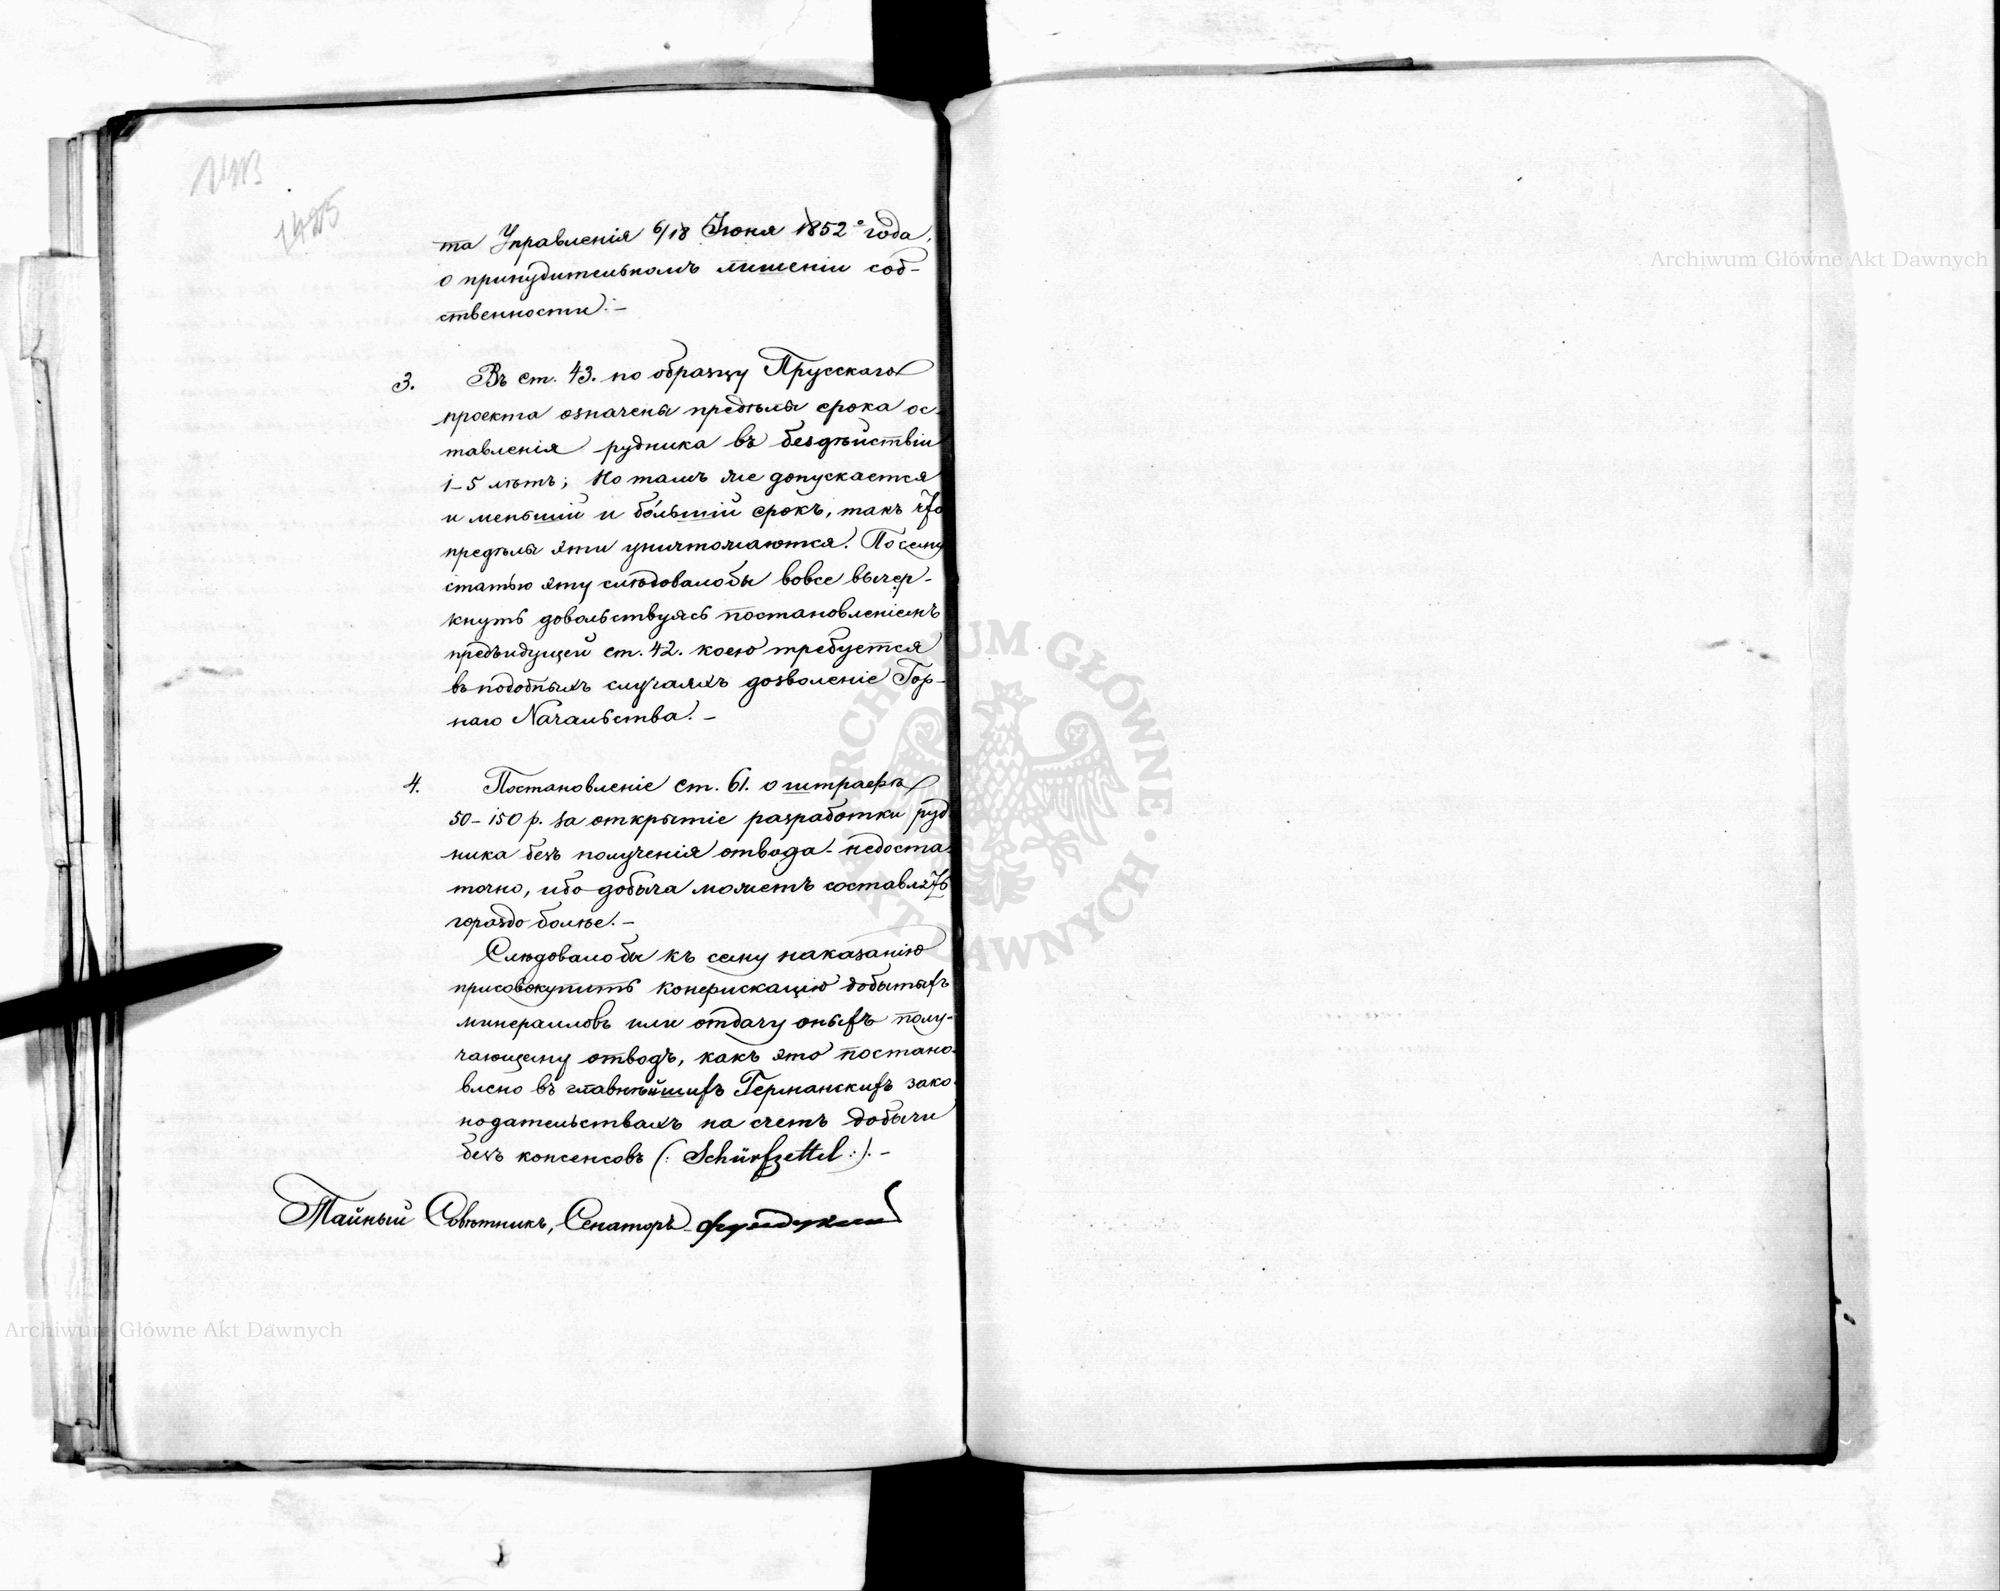 1425
та Управленія 6/18 Іюня 1852 года,
о принудительномъ лишеніи соб-
ственности. –
3. Въ ст. 43. по образцу Прусскаго
проекта означены предѣлы срока ос-
тавленія рудника въ бездѣйствіи
1–5 лѣтъ; но тамъ же допускается
и меньшій и бо́льшій срокъ, такъ что
предѣлы эти уничтожаются. По сему
статью эту слѣдовало бы вовсе вычер-
кнуть довольствуясь постановленіемъ
предъидущей ст. 42. коею требуется
въ подобныхъ случаяхъ дозволеніе Гор-
наго Начальства. –
4. Постановленіе ст. 61. о штрафѣ
50–150 р. за открытіе разработки руд-
ника безъ полученія отвода - недоста-
точно, ибо добыча можетъ составлять
гораздо болѣе. –
Слѣдовало бы къ сему наказанію
присовокупить конфискацію добытыхъ
минераловъ или отдачу оныхъ полу-
чающему отводъ, какъ это постано-
влено въ главнѣйшихъ Германскихъ зако-
нодательствахъ на счетъ добычи
безъ консенсовъ (: Schürfzettel :). –
Тайный Совѣтникъ, Сенаторъ Фундуклей
Archiwum Główne Akt Dawnych
Archiwum Główne Akt Dawnych
ARCHIWUM GŁÓWNE AKT DAWNYCH